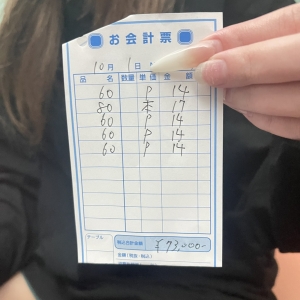 お会計票
10月1日
品名 数量 単価 金額
60 P 14
80 本 17
60 P 14
60 P 14
60 P 14
テーブル
税込合計金額 ¥73,000-